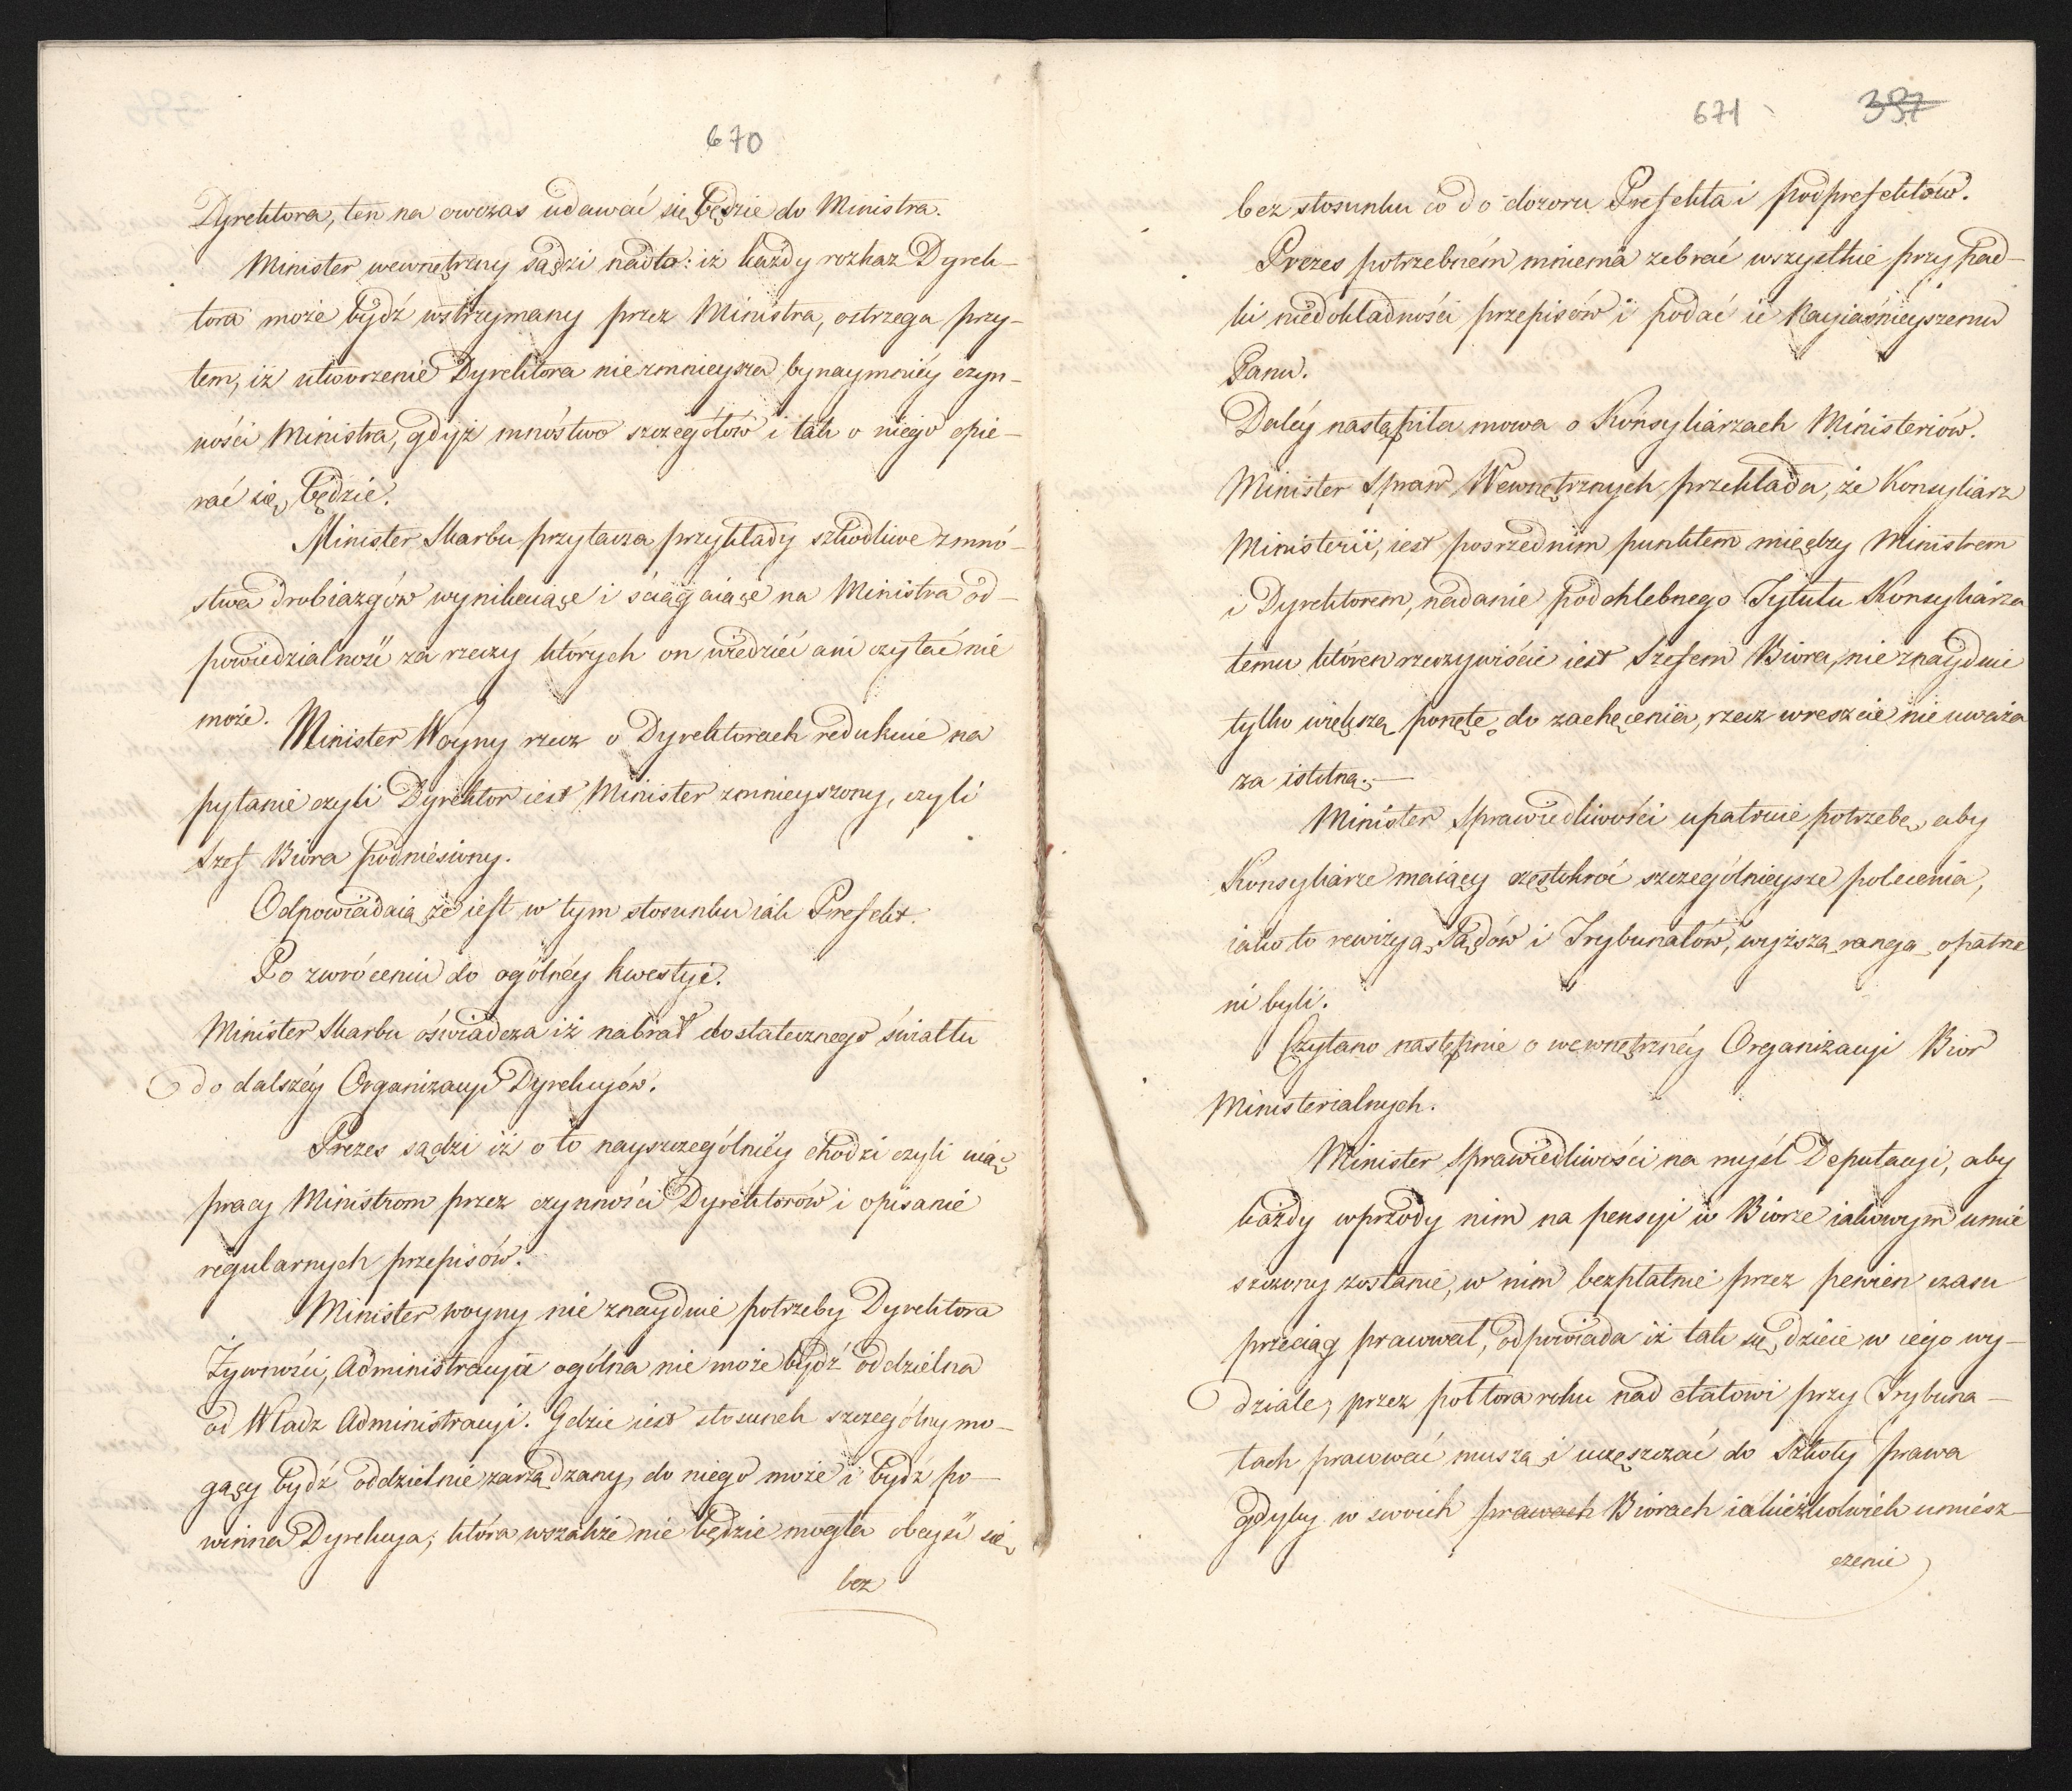 670
Dyrektora, ten na owczas udawać się będzie do Ministra.
Minister wewnętrzny sądzi nadto: iż każdy rozkaz Dyrek-
tora może bydź wstrzymany przez Ministra, ostrzega przy-
tem, iż utworzenie Dyrektora niezmnieysza bynaymniéy czyn-
ności Ministra, gdyż mnóstwo szczegółów i tak o niego opie-
rać się będzie.
Minister Skarbu przytacza przykłady szkodliwe z mnó-
stwa drobiazgów wynikaiące i ściągaiące na Ministra od-
powiedzialność za rzeczy których on wiedzieć ani czytać nie
może.
Minister Woyny rzecz o Dyrektorach redukuie na
pytanie czyli Dyrektor iest Minister zmnieyszony, czyli
Szef Biora podniesiony.
Odpowiadaią że iest w tym stosunku iak Prefekt.
Po zwróceniu do ogólnéy kwestyi.
Minister Skarbu oświadcza iż nabrał dostatecznego światła
do dalszéy Organizacyi Dyrekcyów.
Prezes sądzi iż o to nayszczególniéy chodzi czyli uiąć
pracy Ministrom przez czynności Dyrektorów i opisanie
regularnych przepisów.
Minister woyny nie znayduie potrzeby Dyrektora
Żywności, Administracyia ogólna nie może bydź oddzielna
od Władz Administracyi. Gdzie iest stosunek szczególny mo-
gący bydź oddzielnie zarządzany, do niego może i bydź po-
winna Dyrekcya, która wszakże nie będzie mogła obeyść się
bez
671 337
bez stosunku co do dozoru Prefekta i podprefektów.
Prezes potrzebném mniema zebrać wszystkie przypad-
ki niedokładności przepisów i podać ie Nayiaśnieyszemu
Panu.
Daléy nastąpiła mowa o Konsyliarzach Ministeriów.
Minister Spraw Wewnętrznych przekłada, że Konsyliarz
Ministerii, iest posrzednim punktem między Ministrem
i Dyrektorem, nadanie podchlebnego Tytułu Konsyliarza
temu któren rzeczywiście iest Szefem Biora, nie znayduie
tylko większą ponętę do zachęcenia, rzecz wreszcie nie uważa
za istotną. —
Minister Sprawiedliwości upatruie potrzebę, aby
Konsyliarze maiący częstokroć szczególnieysze polecenia,
iako to rewizyą Sądów i Trybunałów, wyższą rangą opatrze
ni byli.
Czytano następnie o wewnętrznéy Organizacyi Biór
Ministerialnych.
Minister Sprawiedliwości na myśl Deputacyi, aby
każdy wprzódy nim na pensyi w Biórze iakowym umie
szczony zostanie, w nim bezpłatnie przez pewien czasu
przeciąg pracował, odpowiada iż tak się dzieie w iego wy-
dziale, przez półtora roku nad etatowi przy Trybuna-
łach pracować muszą i uczęszczać do Szkoły prawa
gdyby w swoich prawach Biórach iakieżkolwiek umiesz-
czenie